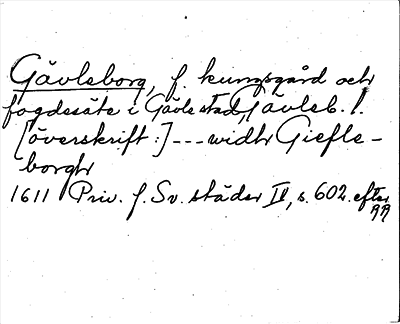 Gävleborg, f. kungsgård och
fogdesäte i Gävle stad, Gävleb. l.
[överskrift:] --- widtr Giefle-
borgh
1611 Priv. f. Sv. städer II, s. 602. efter